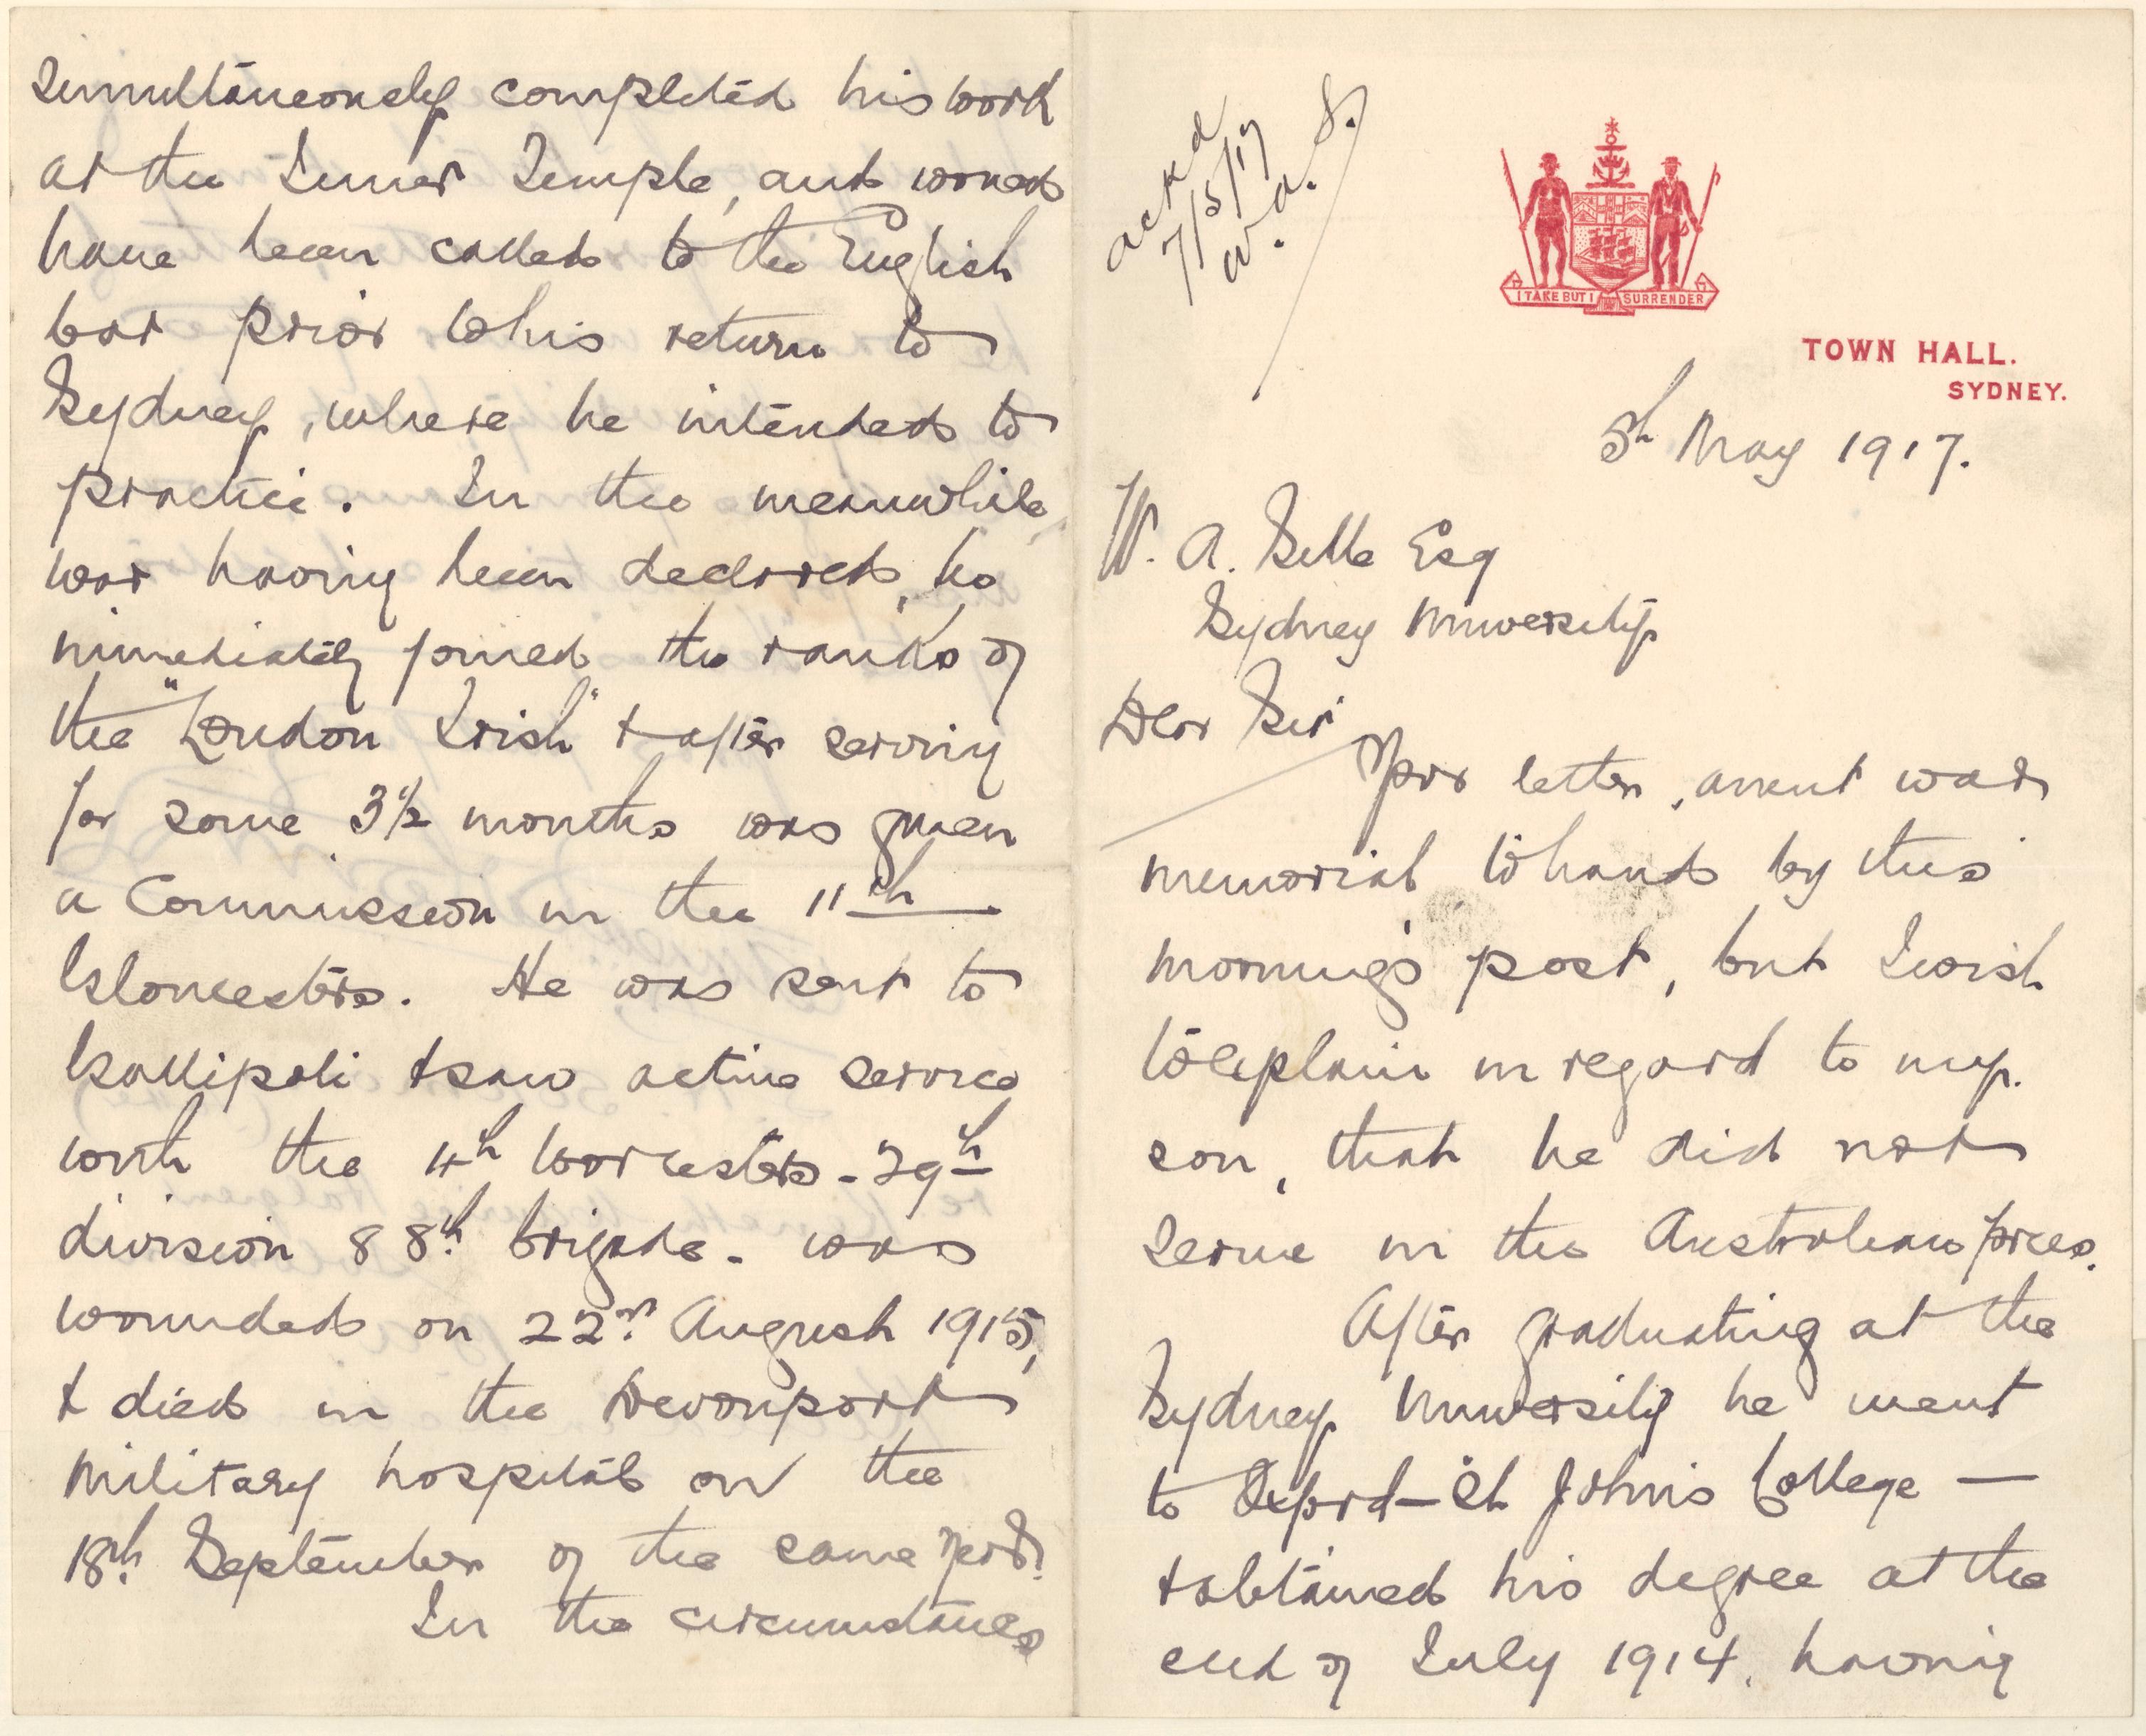 ackd
7/5/17
W. A. S.
I TAKE BUT I SURRENDER
TOWN HALL.
SYDNEY.
5th May 1917.
W. A. Selle Esq
Sydney University
Dear Sir
Your letter, anent war
memorial to hand by this
morning's post, but I wish
to explain in regard to my
son, that he did not
serve in the Australian forces.
After graduating at the
Sydney University he went
to Oxford – St John's College –
& obtained his degree at the
end of July 1914, having
simultaneously completed his work
at the Inner Temple, and would
have been called to the English
bar prior to his return to
Sydney, where he intended to
practice. In the meanwhile,
war having been declared, he
immediately joined the ranks of
the "London Irish" & after serving
for some 3½ months was given
a Commission in the 11th
Gloucesters. He was sent to
Gallipoli & saw active service
with the 4th Worcesters - 29th
division 88th brigade - was
wounded on 22nd August 1915,
& died in the Devonport
military hospital on the
18th September of the same year.
In the circumstances